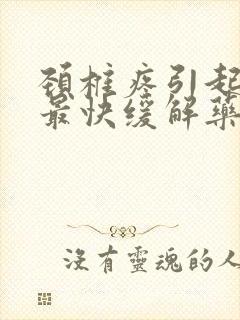 颈椎疼引起
最快缓解药
没有靈魂的人